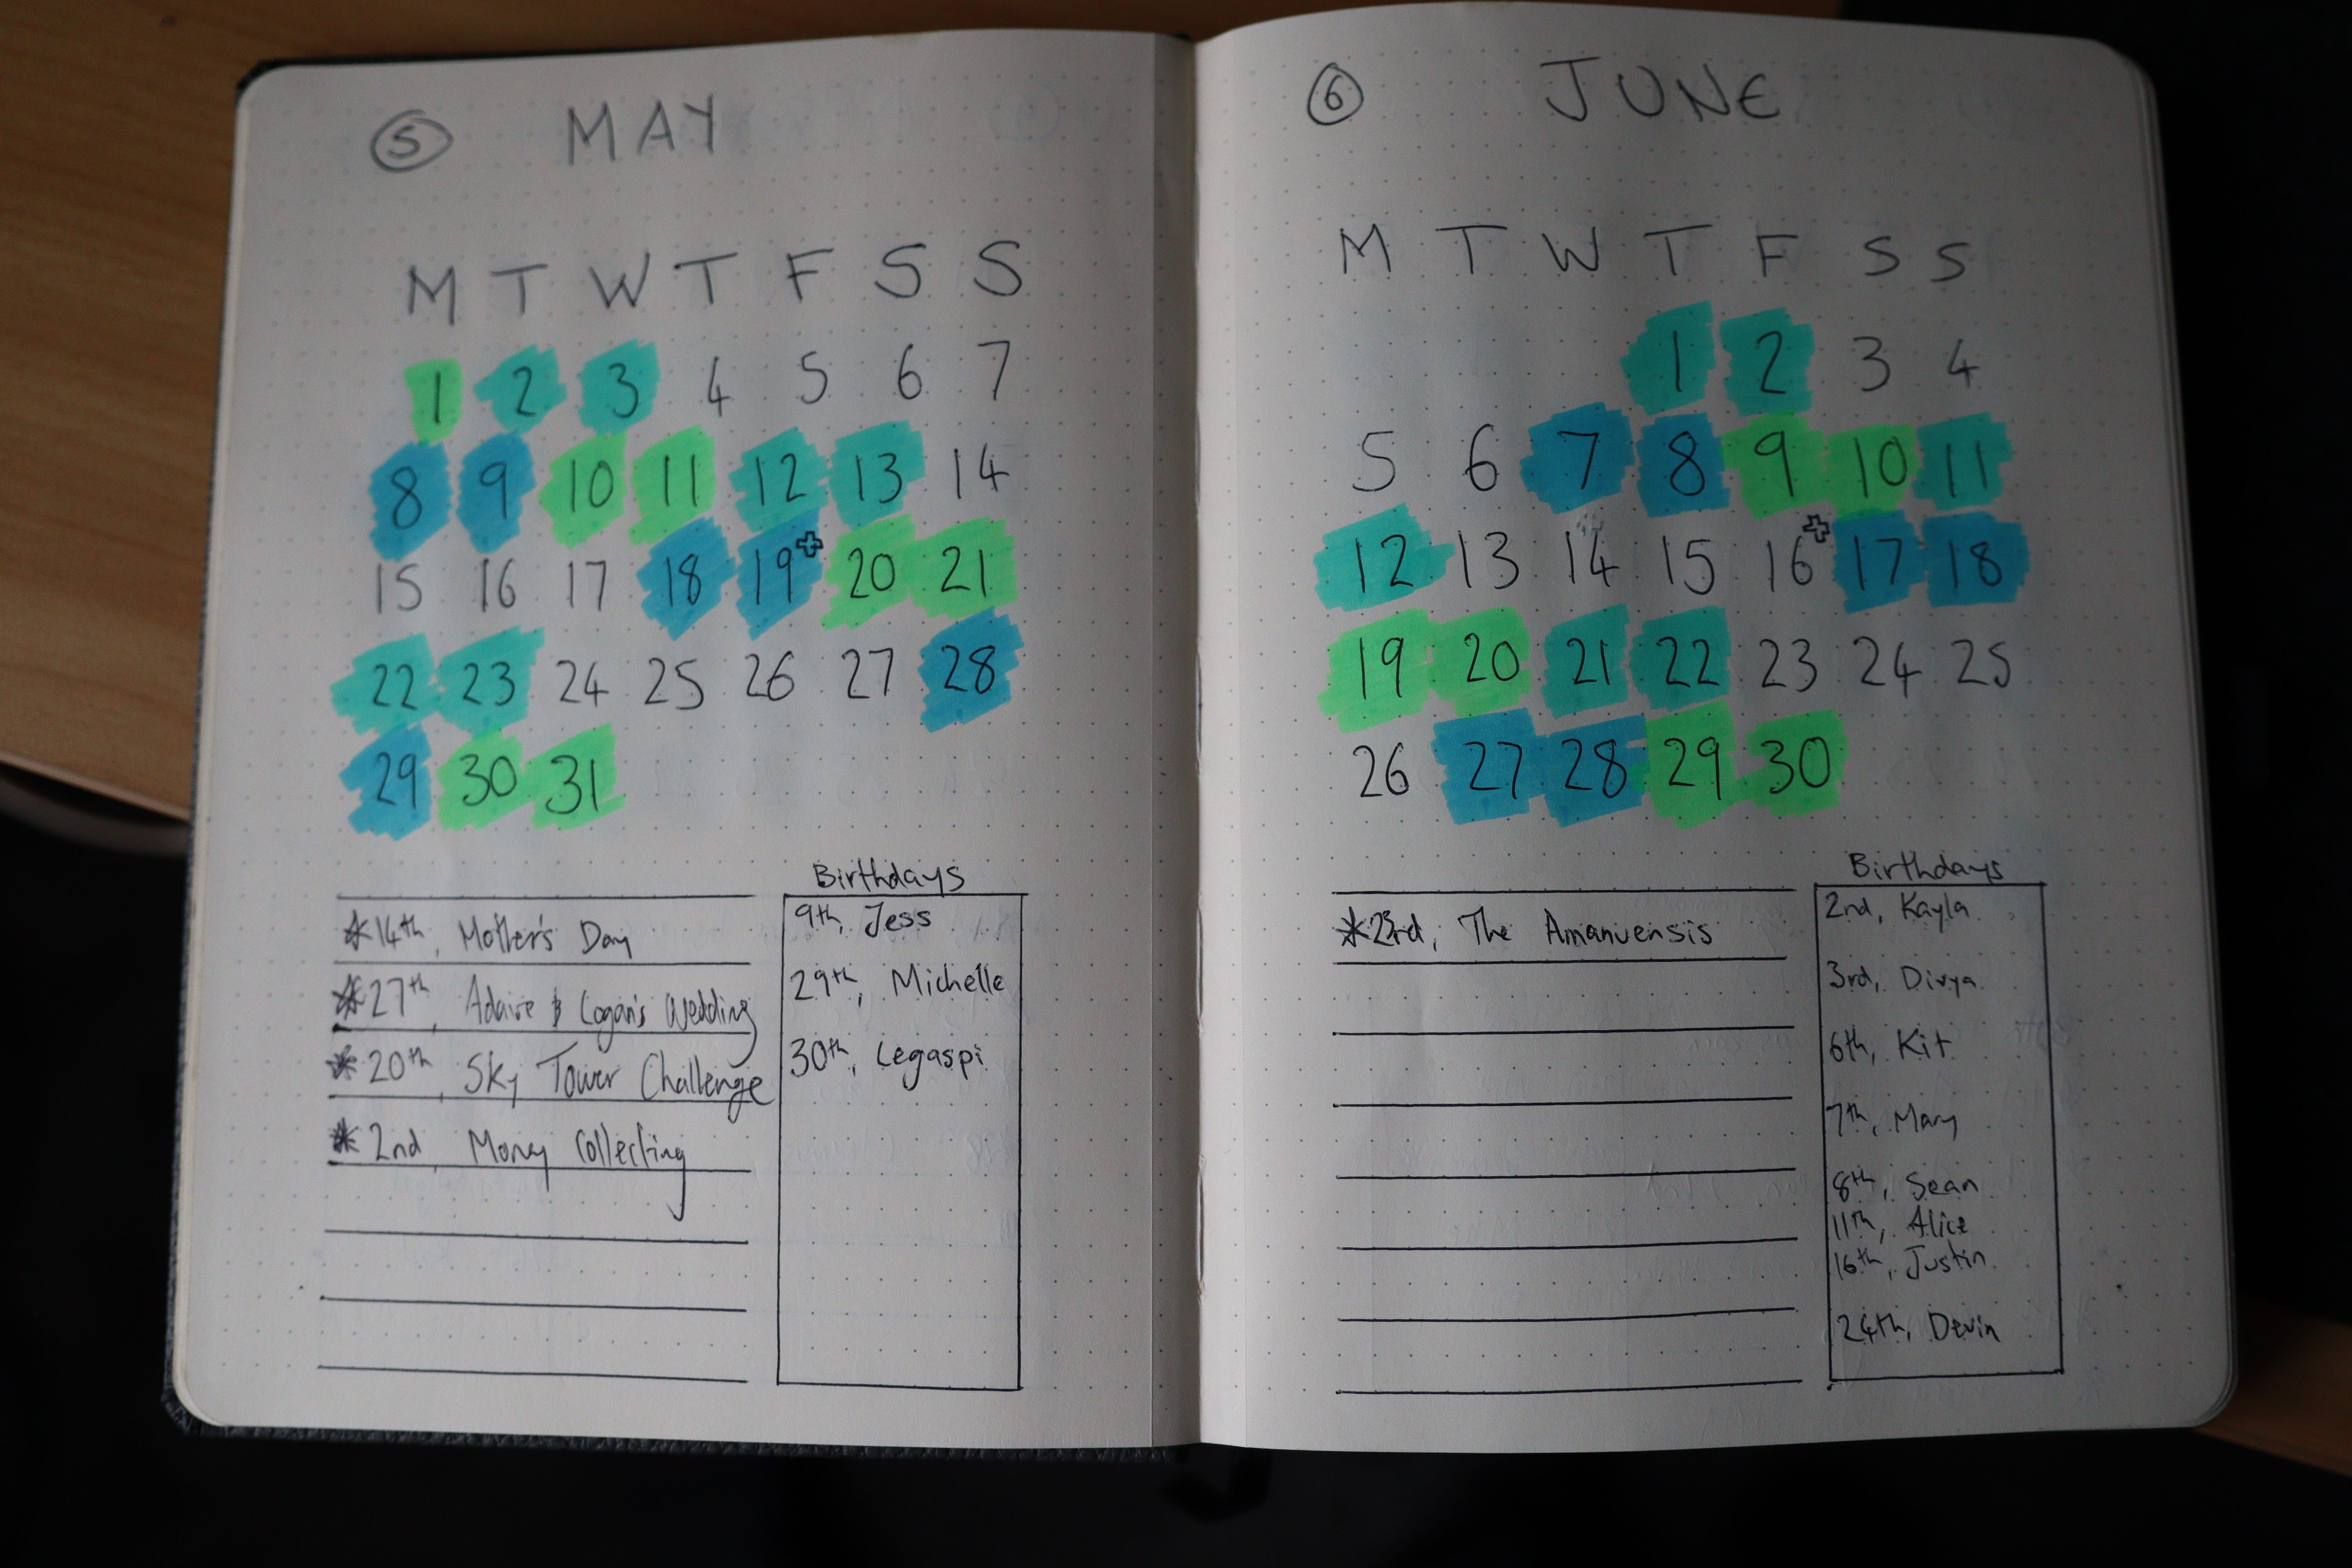 5 MAY
M T W T F S S
1 2 3 4 5 6 7
8 9 10 11 12 13 14
15 16 17 18 19 20 21
22 23 24 25 26 27 28
29 30 31
*14th, Mother's Day
*27th, Adaire & Logan's Wedding
*20th, Sky Tower Challenge
*2nd, Money Collecting
Birthdays
9th, Jess
29th, Michelle
30th, Legaspi
6 JUNE
M T W T F S S
1 2 3 4
5 6 7 8 9 10 11
12 13 14 15 16 17 18
19 20 21 22 23 24 25
26 27 28 29 30
*23rd, The Amanuensis
Birthdays
2nd, Kayla
3rd, Divya
6th, Kit
7th, Mary
8th, Sean
11th, Alice
16th, Justin
24th, Devin